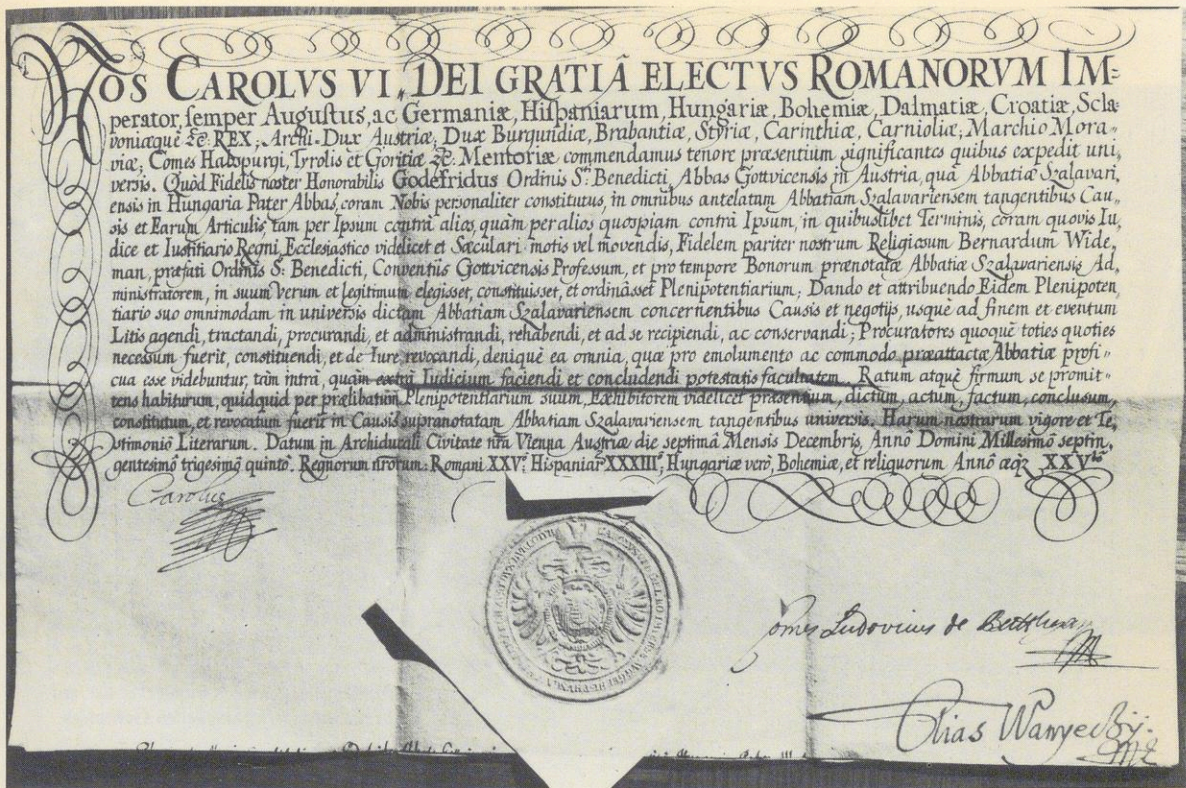 NOS CAROLVS VI. DEI GRATIÂ ELECTVS ROMANORVM IM=
perator, semper Augustus, ac Germaniæ, Hispaniarum, Hungariæ, Bohemiæ, Dalmatiæ, Croatiæ, Scla-
voniæquè &c: REX; Archi-Dux Austriæ, Dux Burgundiæ, Brabantiæ, Styriæ, Carinthiæ, Carnioliæ; Marchio Mora-
viæ; Comes Habspurgi, Tyrolis et Goritiæ &c: Memoriæ commendamus tenore præsentium significantes quibus expedit uni-
versis. Quòd Fidelis noster Honorabilis Godefridus Ordinis S.ti Benedicti, Abbas Gottvicensis in Austria, quâ Abbatiæ Szalavari-
ensis in Hungaria Pater Abbas, coram Nobis personaliter constitutus, in omnibus antelatam Abbatiam Szalavariensem tangentibus Cau-
sis et Earum Articulis, tam per Ipsum contrà alios, quàm per alios quospiam contrà Ipsum, in quibuslibet Terminis, coram quovis Iu-
dice et Iustitiario Regni, Ecclesiastico videlicet et Sæculari motis vel movendis, Fidelem pariter nostrum Religiosum Bernardum Wide-
man, præfati Ordinis S: Benedicti, Conventûs Gottvicensis Professum, et pro tempore Bonorum prænotatæ Abbatiæ Szalavariensis Ad-
ministratorem, in suum verum et legitimum elegisset, constituisset, et ordinâsset Plenipotentiarium; Dando et attribuendo Eidem Plenipoten-
tiario suo omnimodam in universis dictam Abbatiam Szalavariensem concernentibus Causis et negotijs, usquè ad finem et eventum
Litis agendi, tractandi, procurandi, et administrandi, rehabendi, et ad se recipiendi, ac conservandi; Procuratores quoquè toties quoties
necessum fuerit, constituendi, et de Iure revocandi, deniquè ea omnia, quæ pro emolumento ac commodo præattactæ Abbatiæ profi-
cua esse videbuntur, tàm intrà, quàm extrà Iudicium faciendi et concludendi potestatis facultatem. Ratum atquè firmum se promit-
tens habiturum, quidquid per prælibatum Plenipotentiarium suum, Exhibitorem videlicet præsentium, dictum, actum, factum, conclusum,
constitutum, et revocatum fuerit in Causis supranotatam Abbatiam Szalavariensem tangentibus universis. Harum nostrarum vigore et Te-
stimonio Literarum. Datum in Archiducali Civitate nrâ Vienna Austriæ die septimâ Mensis Decembris, Annô Domini Millesimô septin-
gentesimô trigesimô quintô. Regnorum nrorum: Romani XXV; Hispaniar. XXXIII; Hungariæ verò, Bohemiæ, et reliquorum Annô æqz XXV.tô
Carolus
Comes Ludovicus de Batthyan
Elias Wanyeczÿ